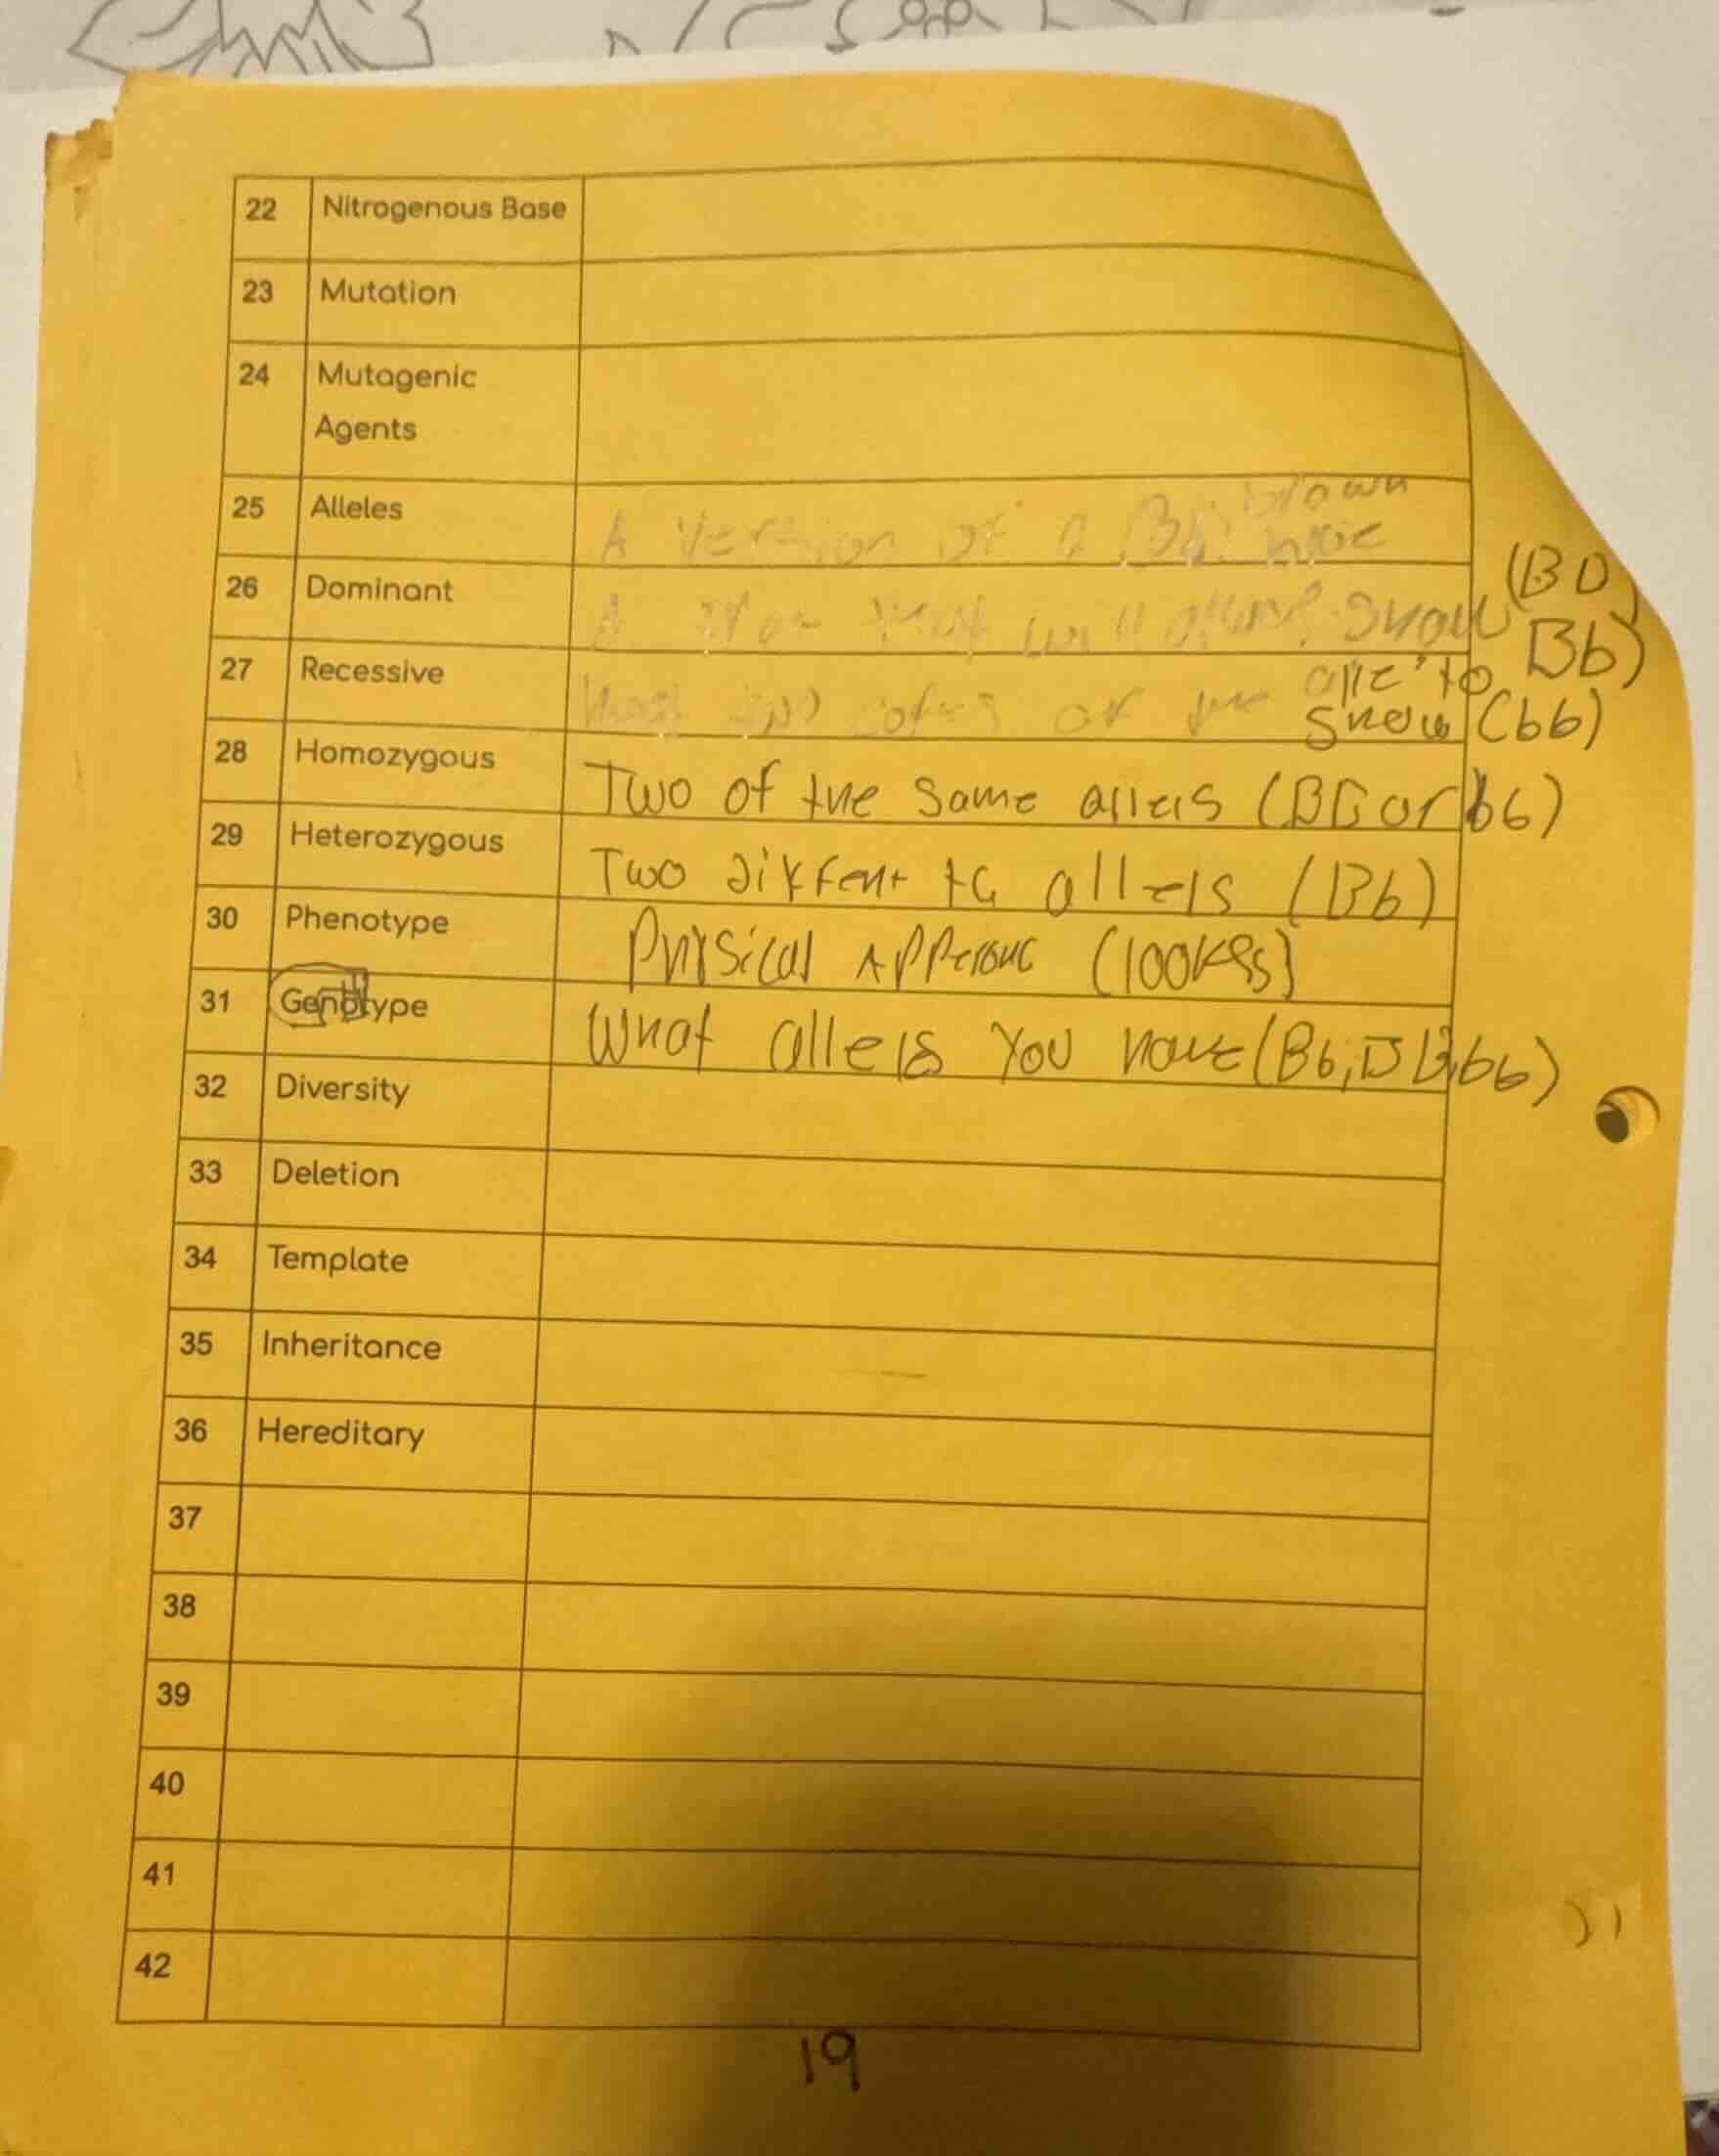 22 Nitrogenous Base
23 Mutation
24 Mutagenic
Agents
brown
25 Alleles A version of a
26 Dominant A that will show (BD
Bb)
27 Recessive two of the to
show (bb)
28 Homozygous Two of the same allels (BB or bb)
29 Heterozygous Two allels (Bb)
30 Phenotype Physical (looks)
31 Genotype What allels you have (Bb, BB, bb)
32 Diversity
33 Deletion
34 Template
35 Inheritance
36 Hereditary
37
38
39
40
41
42
19